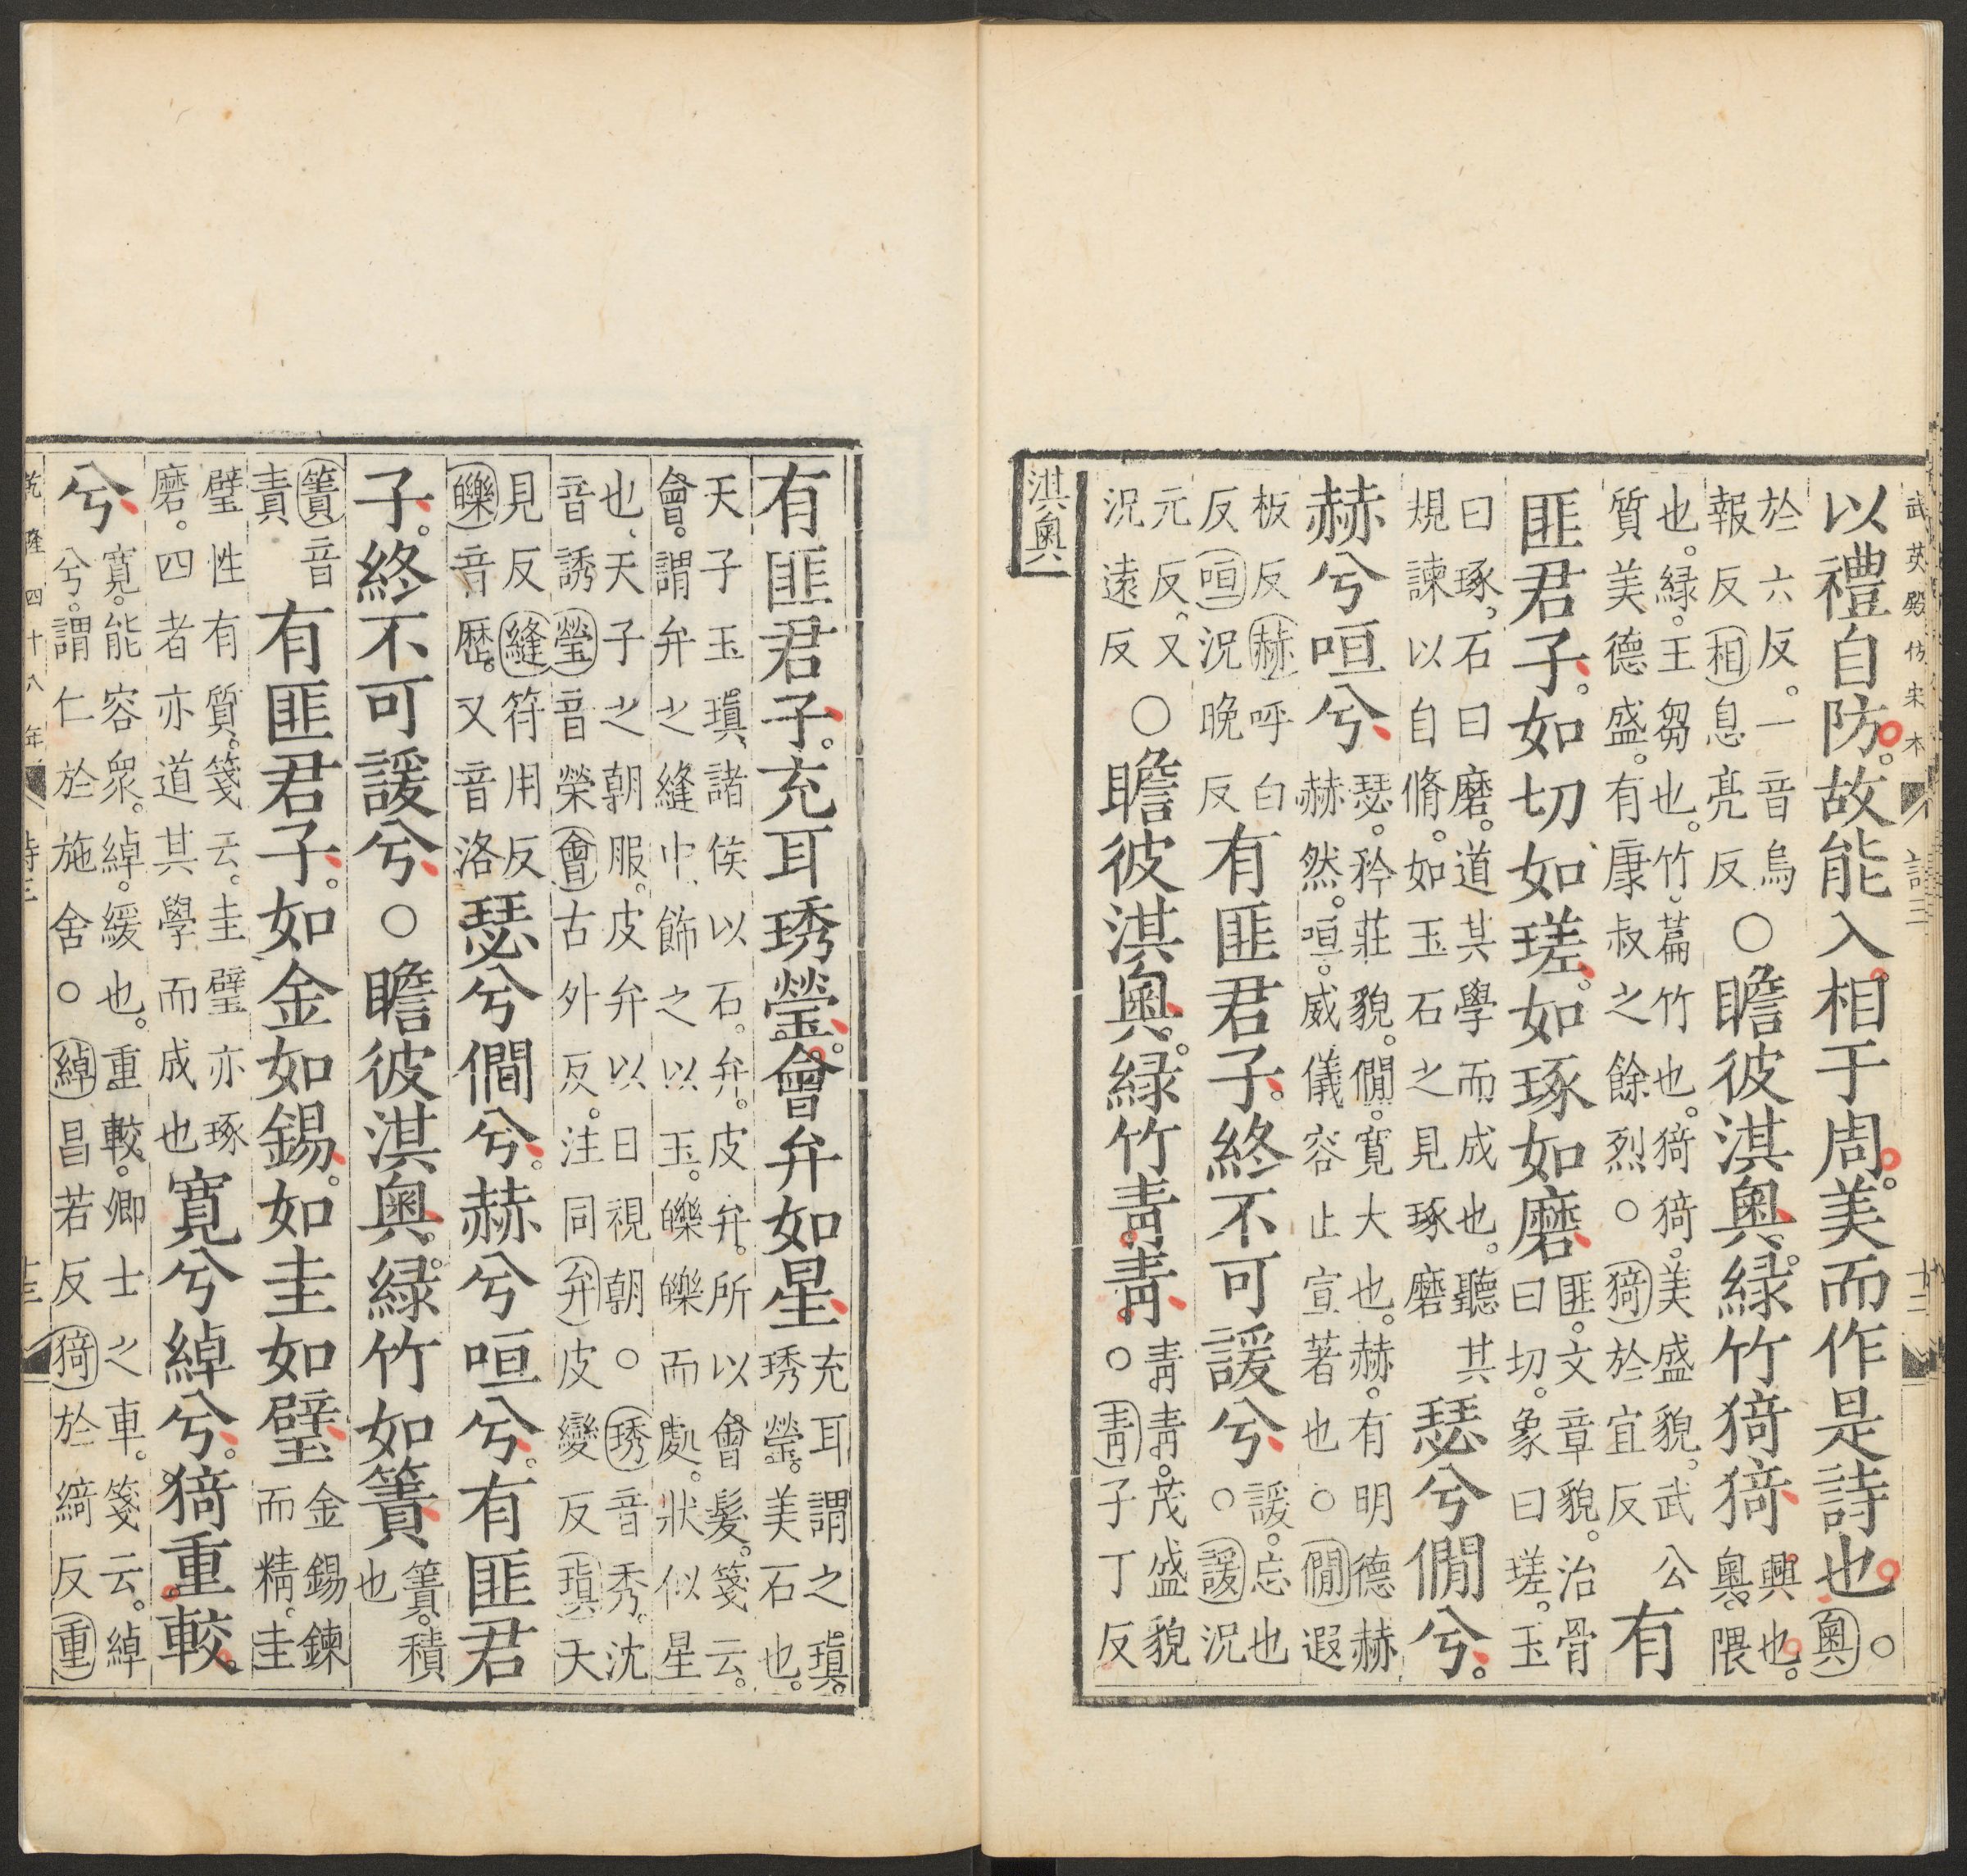 武英殿仿宋本 詩三 十二
以禮自防。故能入相于周。美而作是詩也。○奧
於六反。一音烏報反相息亮反○瞻彼淇奧。緑竹猗猗興也。奧。隈
也。緑。王芻也。竹。萹竹也。猗猗。美盛貌。武公質美德盛。有康叔之餘烈○猗於宜反有
匪君子。如切如瑳。如琢如磨匪。文章貌。治骨曰切。象曰瑳。玉
曰琢。石曰磨。道其學而成也。聽其規諫以自脩。如玉石之見琢磨瑟兮僩兮。
赫兮咺兮瑟。矜莊貌。僩。寬大也。赫。有明德赫赫然。咺。威儀容止宣著也○僩遐
板反赫呼白反咺況晚反有匪君子。終不可諼兮諼。忘也○諼況
元反。又況遠反○瞻彼淇奧。緑竹青青。青青。茂盛貌○青子丁反
淇奧
有匪君子。充耳琇瑩。會弁如星充耳謂之瑱。琇瑩。美石也。
天子玉瑱。諸侯以石。弁。皮弁。所以會髮。箋云。會。謂弁之縫中。飾之以玉。皪皪而處。狀似星
也。天子之朝服。皮弁以日視朝○琇音秀。沈音誘瑩音榮會古外反。注同弁皮變反瑱天
見反縫符用反皪音歷。又音洛瑟兮僩兮。赫兮咺兮。有匪君
子。終不可諼兮○瞻彼淇奧。緑竹如簀簀。積也
簀音責有匪君子。如金如錫。如圭如璧金錫鍊而精。圭
璧性有質。箋云。圭璧亦琢磨。四者亦道其學而成也寬兮綽兮。猗重較。
兮寬。能容衆。綽。緩也。重較。卿士之車。箋云。綽兮。謂仁於施舍○綽昌若反猗於綺反重
乾隆四十八年 詩三 十三